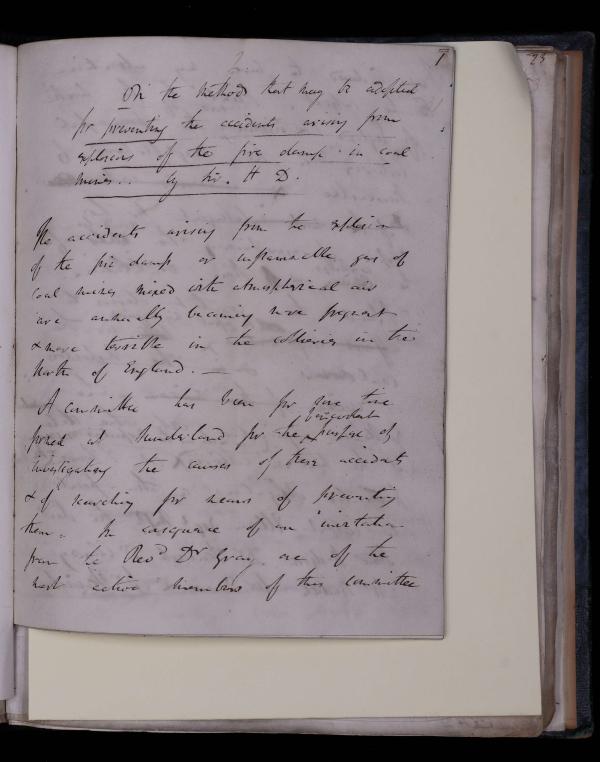 7
23
On the method that may be adopted
for preventing the accidents arising from
explosions of the fire damp in coal
mines.. by Sir. H D.
The accidents arising from the explosion
of the fire damp or inflammable gas of
coal mines mixed with atmospherical air
are annually becoming more frequent
& more terrible in the collieries in the
North of England. —
A committee has been for some time
benevolent
formed at Sunderland for the purpose of
investigating the causes of these accidents
& of searching for means of preventing
them. In consequence of an invitation
from the Revd Dr Gray one of the
most active members of this committee